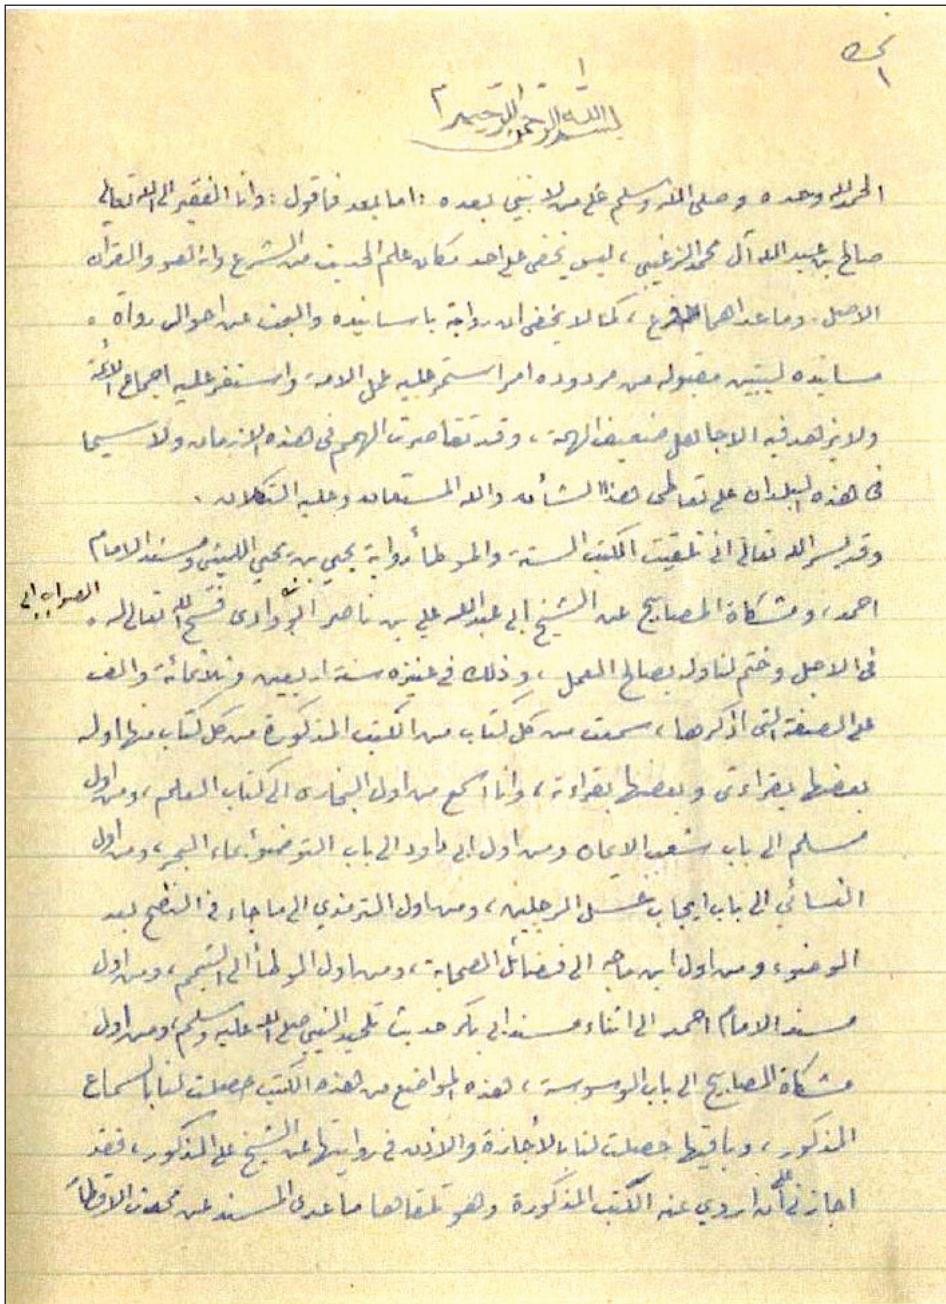 بسم الله الرحمن الرحيم
الحمد لله وحده وصلى الله وسلم على من لا نبي بعده : اما بعد فاقول : وانا الفقير الى الله تعالى
صالح بن عبد الله آل محمد الزغيبي ، ليس يخفى على احد مكان علم الحديث من الشرع وانه هو والقرآن
الاصل . وما عداهما فرع ، كما لا يخفى ان رواية باسانيده والبحث عن احوال رواة
مسانيده ليتبين مقبوله من مردوده امر استمر عليه عمل الامة واستقر عليه اجماع الأئمة
ولا يزهد فيه الا جاهل ضعيف الهمة ، وقد تقاصرت الهمم في هذه الازمان ولا سيما
في هذه البلدان على تعاطى هذا الشأن والله المستعان وعليه التكلان .
وقد يسر الله تعالى انى تلقيت الكتب الستة والموطأ رواية يحيى بن يحيى الليثي ومسند الامام
احمد ، ومشكاة المصابيح عن الشيخ ابى عبد الله علي بن ناصر ابو وادى فسح الله تعالى له
الصواب ابى
فى الاجل وختم لنا وله بصالح العمل ، وذلك في عنيزه سنة اربعين وثلاثمائة والف
على الصفة التى اذكرها ، سمعت من كل كتاب من الكتب المذكورة من كل كتاب منها اوله
بعضها بقراءتى وبعضها بقراءته ، وانا اسمع من اول البخارى الى كتاب العلم ، ومن اول
مسلم الى باب شعب الايمان ومن اول ابى داود الى باب التوضوء بماء البحر ، ومن اول
النسائي الى باب ايجاب غسل الرجلين ، ومن اول الترمذي الى ما جاء في النضح بعد
الوضوء ومن اول ابن ماجه الى فضائل الصحابة ، ومن اول الموطأ الى التيمم ، ومن اول
مسند الامام احمد الى اثناء مسند ابى بكر حديث تلحيد النبي صلى الله عليه وسلم ، ومن اول
مشكاة المصابيح الى باب الوسوسة ، هذه المواضع من هذه الكتب حصلت لنا بالسماع
المذكور ، وباقيها حصلت لنا بالاجازة والاذن في روايتها عن الشيخ علي المذكور ، فقد
اجازني أن اروي عنه الكتب المذكورة وهو تلقاها ما عدى المسند عن محدث الاقطار